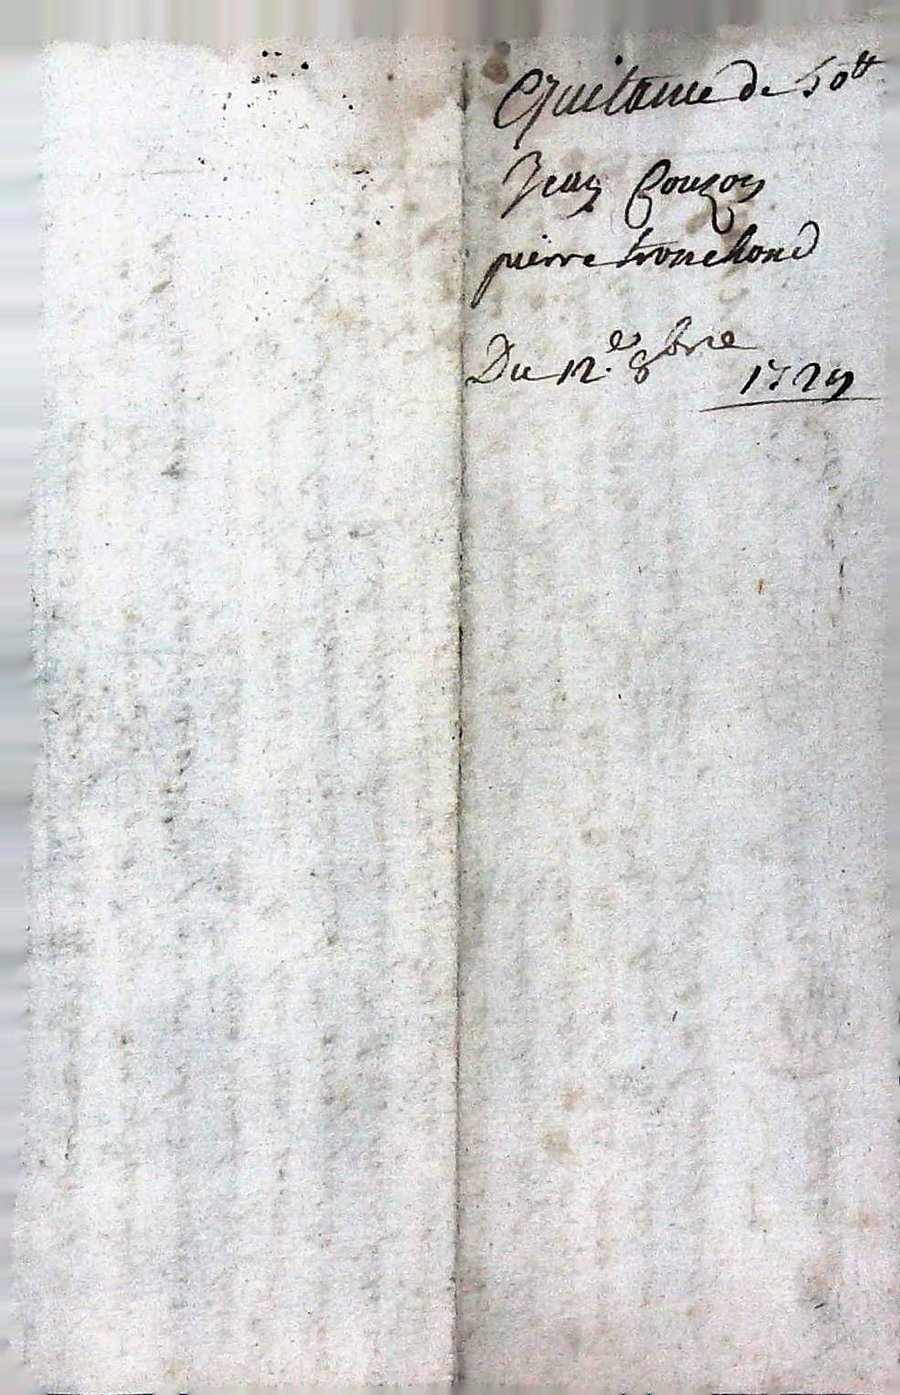 Quitance de 50tt
Jean Couzon
pierre tronchond
Du 12.e 8bre
172